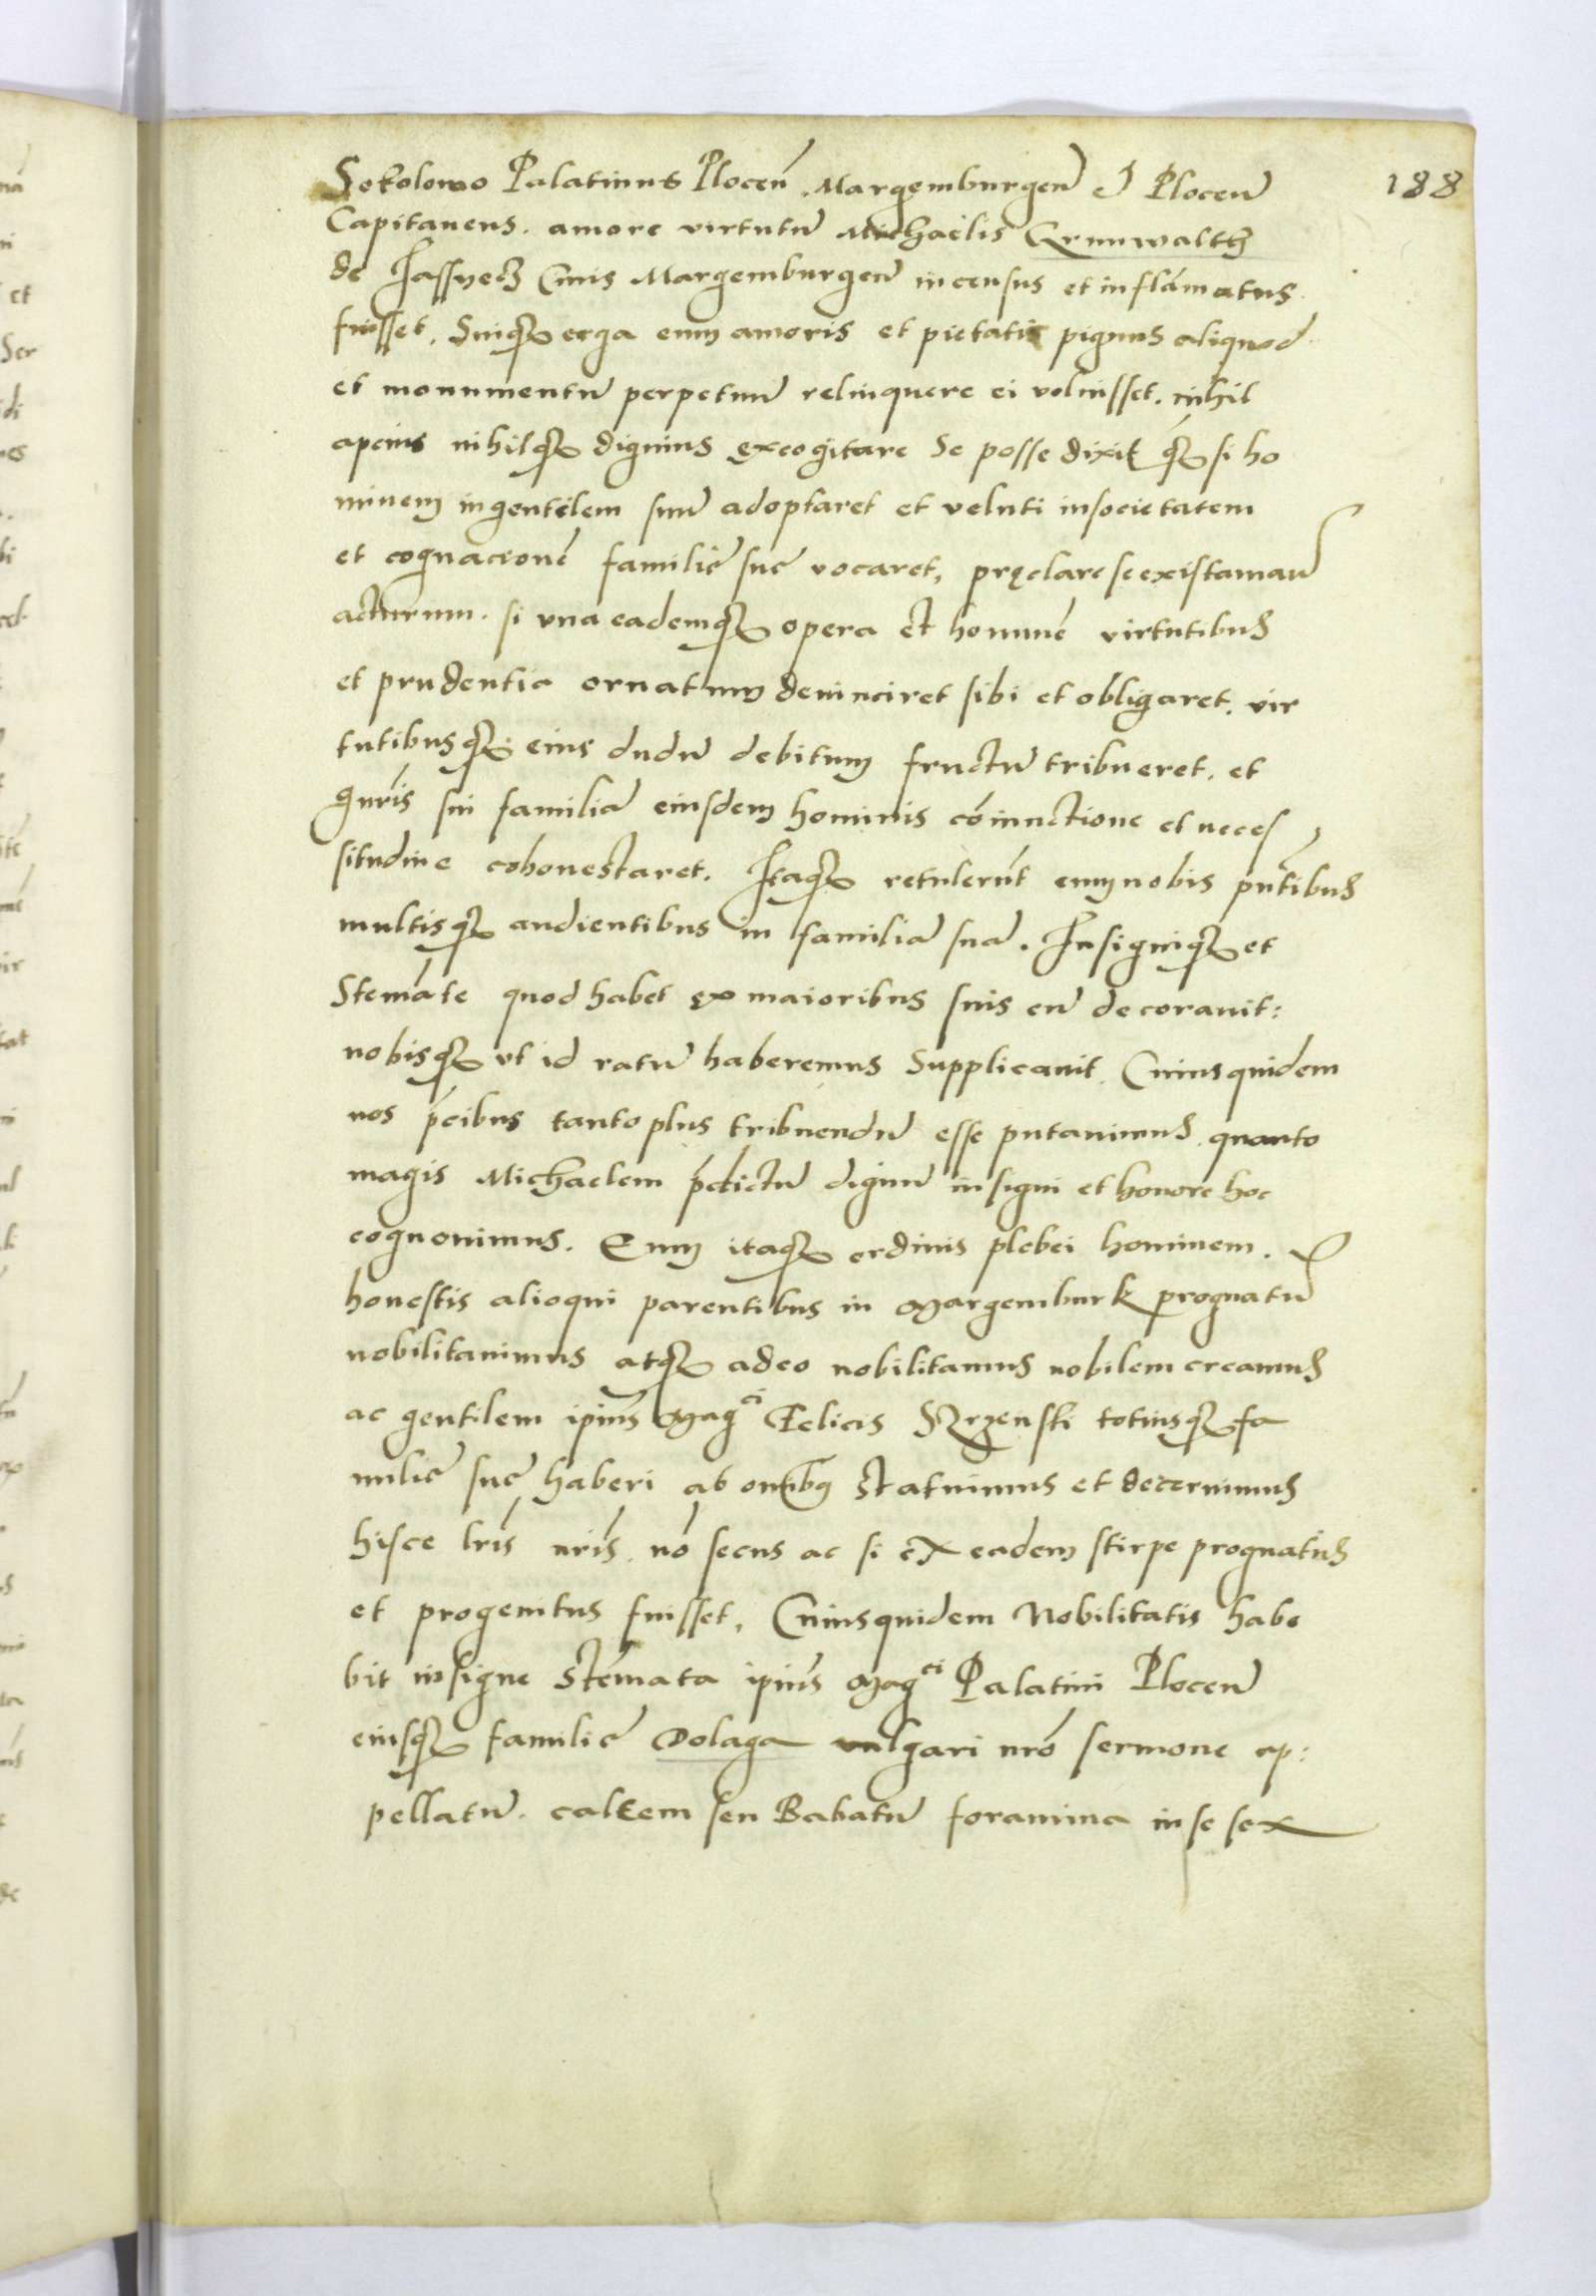 188
Sokolowo Palatinus Plocen̄. Margemburgen̄ et Plocen̄
Capitaneus. amore virtutū Michaelis Grunwalth
de Jassyecz Civis Margemburgen̄ incensus et inflāmatus
fuisset. Suiq₃ erga eum amoris et pietatis pignus aliquod
et monumentū perpetuū relinquere ei voluisset. nihil
apcius nihilq₃ dignius excogitare se posse dixit q̄₃ si ho
minem in gentilem suū adoptaret et veluti in societatem
et cognacionē familię suę vocaret, pręclare se existamaū
acturum. si una eademq₃ opera et hominē virtutibus
et prudentia ornatum devinciret sibi et obligaret. vir
tutibusq₃ eius dudū debitum fructū tribueret. et
gn̄ris sui familiā eiusdem hominis cōiunctione et neces
situdine cohonestaret. Itaq₃ retulerūt eum nobis pn̄tibus
multisq₃ audientibus in familiā suā. Insigniq₃ et
Stemāte quod habet ex maioribus suis eū decoravit:
nobisq₃ ut id ratū haberemus supplicavit. Cuiusquidem
nos p̄cibus tanto plus tribuendū esse putavimus quanto
magis Michaelem p̄dictū dignū insigni et honore hoc
cognovimus. Eum itaq₃ ordinis plebei hominem.
honestis alioqui parentibus in Margemburk prognatū
nobilitavimus atq₃ adeo nobilitamus nobilem creamus
ac gentilem ip̄ius Mag^ci Felicis Srzenski totiusq₃ fa
milię suę haberi ab om̄ibus statuimus et decernimus
hisce lr̄is nr̄is. nō secus ac si ex eadem stirpe prognatus
et progenitus fuisset. Cuiusquidem Nobilitatis habe
bit insigne stēmata ip̄ius Mag^ci Palatini Plocen̄
eiusq₃ familię Dolaga vulgari nr̄o sermone ap:
pellatū. calcem seu Babatū foramina in se sex